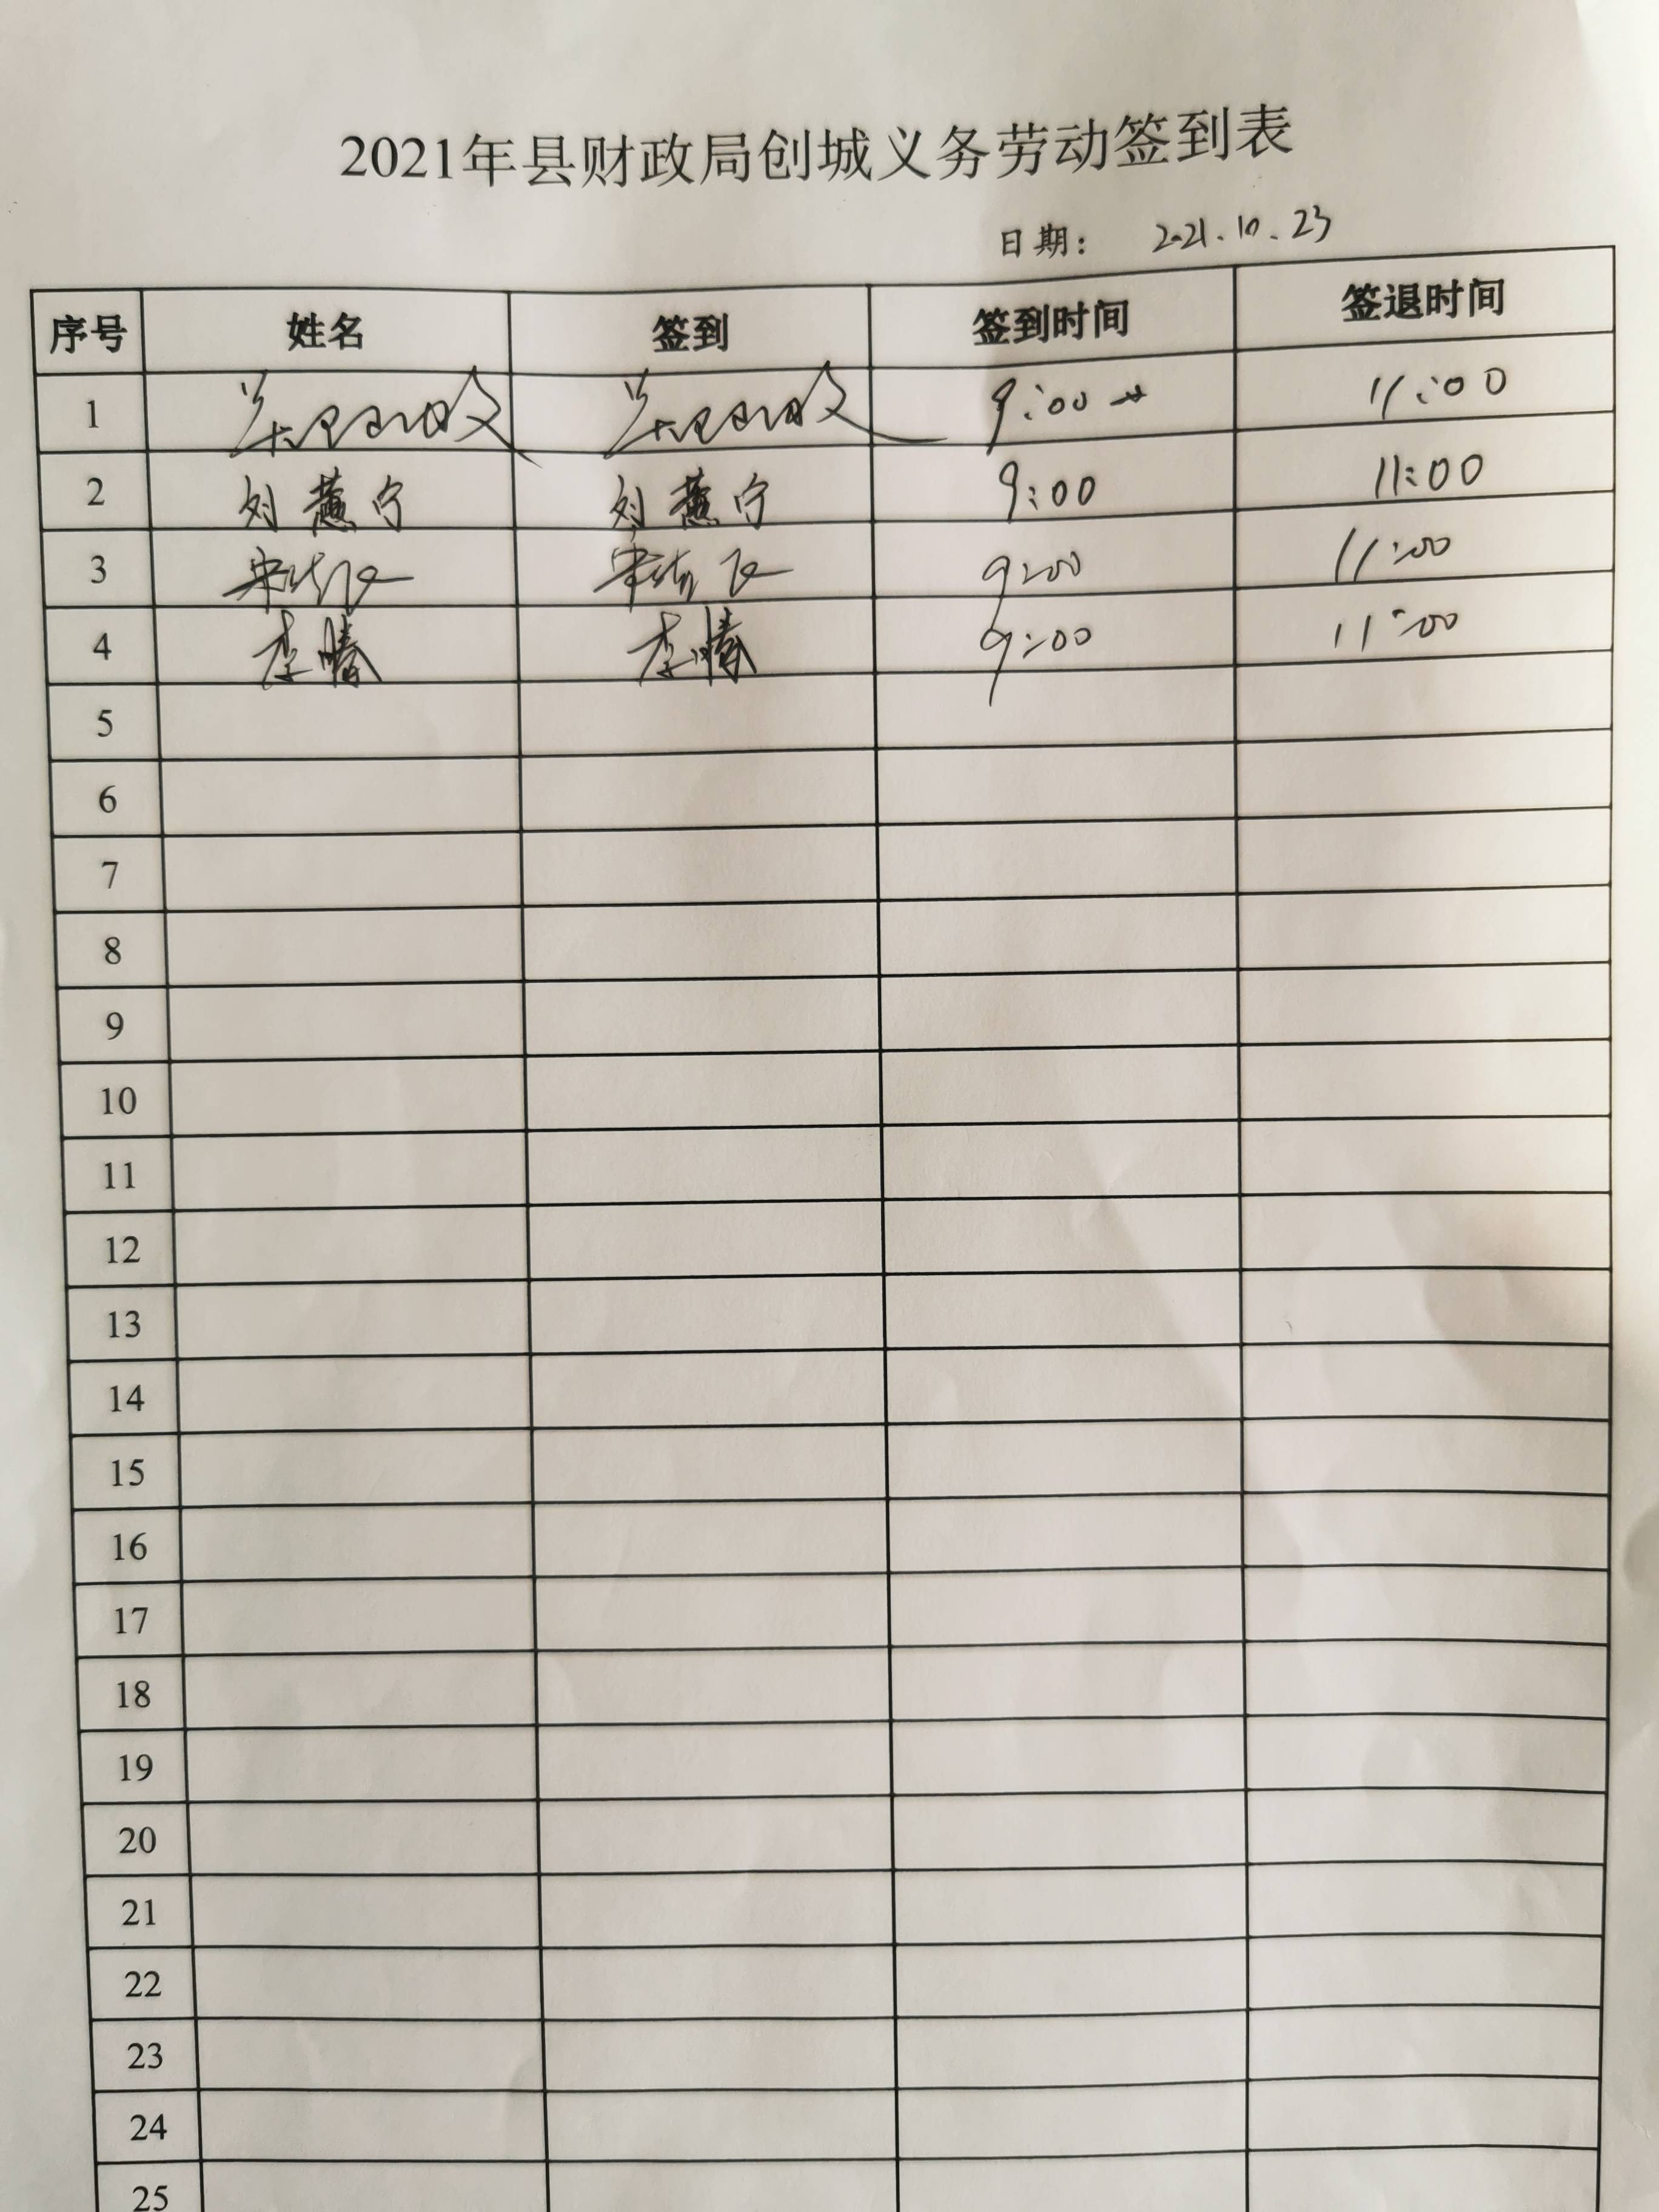 2021年县财政局创城义务劳动签到表
日期： 2021.10.23
序号 姓名 签到 签到时间 签退时间
1 9:00 11:00
2 刘慧宁 刘慧宁 9:00 11:00
3 宋 宋 9:00 11:00
4 李腾 李腾 9:00 11:00
5
6
7
8
9
10
11
12
13
14
15
16
17
18
19
20
21
22
23
24
25